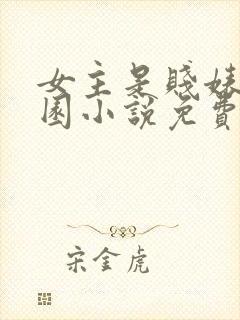 女主是賤妹
園小說免費
宋金虎